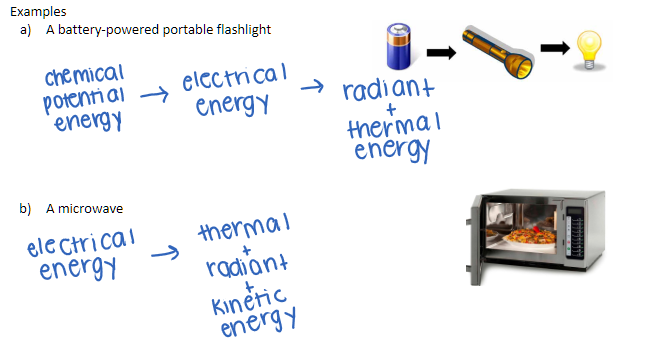 Examples
a) A battery-powered portable flashlight
chemical
potential
energy
→ electrical
energy
→ radiant
+
thermal
energy
b) A microwave
electrical
energy
→ thermal
+
radiant
+
kinetic
energy